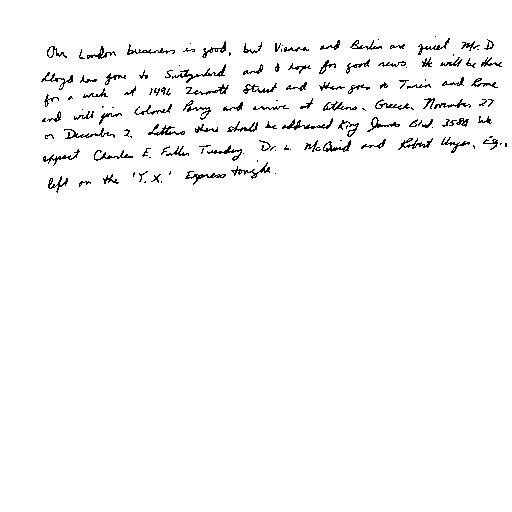 Our London business is good, but Vienna and Berlin are quiet. Mr. D
Lloyd has gone to Switzerland and I hope for good news. He will be there
for a week at 1496 Zermott Street and then goes to Turin and Rome
and will join Colonel Parry and arrive at Athens, Greece, November 27
or December 2. Letters there should be addressed King James Blvd. 3580 We
expect Charles E. Fuller Tuesday. Dr. L. McQuaid and Robert Unger, Esq.,
left on the 'Y.X.' Express tonight.